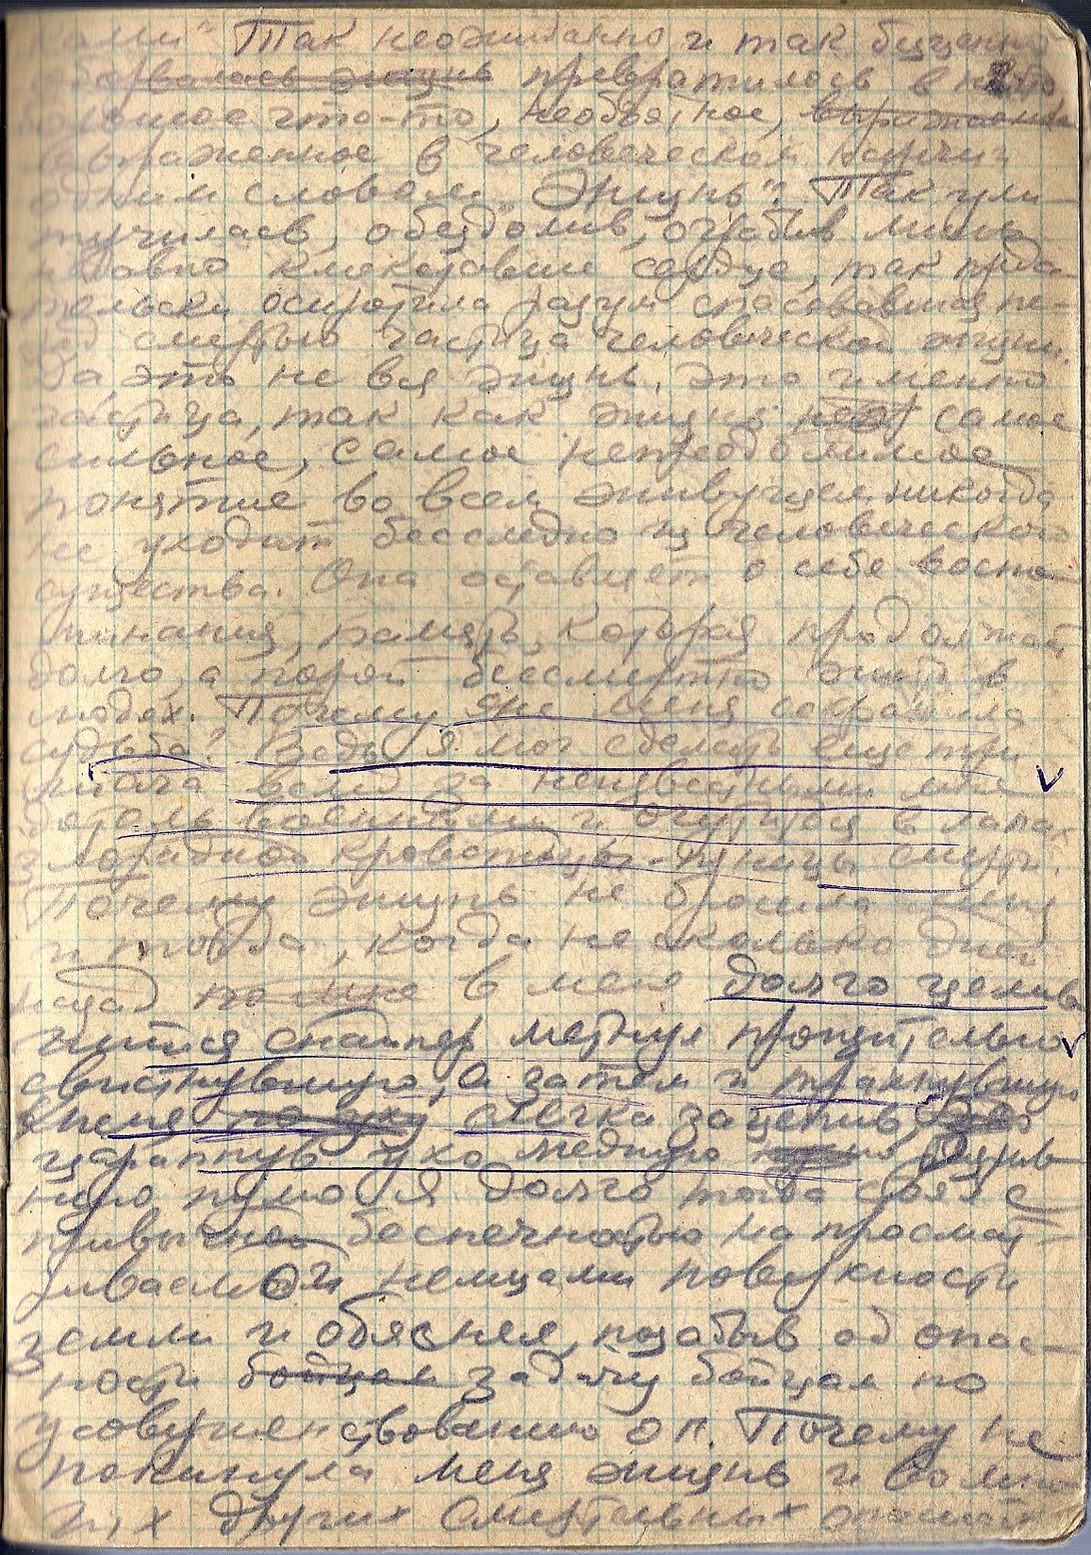 нами" Так неожиданно и так бесценно
оборвалась жизнь превратилось в
большое что-то, необъятное,
выраженное в человеческом наречии
одним словом „Жизнь". Так уле-
тучилась, обездолив, ограбив
клекотавшие сердца, так преда-
тельски осиротила разум спасовавшая пе-
ред смертью частица человеческой жизни.
Да, это не вся жизнь, это именно
частица, так как жизнь самое
сильное, самое непреодолимое
понятие во всем живущем никогда
не уходит бесследно из человеческого
существа. Она оставляет о себе воспо-
минания, память, которая продолжает
долго, а порой бессмертно жить в
людях. Почему же меня сохранила
судьба? Ведь я мог сделать еще три
шага вслед за неизвестными мне
военными и очутиться в лапах
кровопийцы смерти.
Почему жизнь не бросила меня
и тогда, когда несколько дней
назад по мне в меня долго целив-
шийся снайпер метнул пронзительно
свистнувшую, а затем и трахнувшую
слегка зацепив,
царапнув ухо медную
пулю. Я долго тогда стоял с
привычной беспечностью на просмат-
риваемой немцами поверхности
земли и объяснял, позабыв об опас-
ности бойцам задачу бойцам по
усовершенствованию оп. Почему не
покинула меня жизнь и во мно-
гих других смертельных